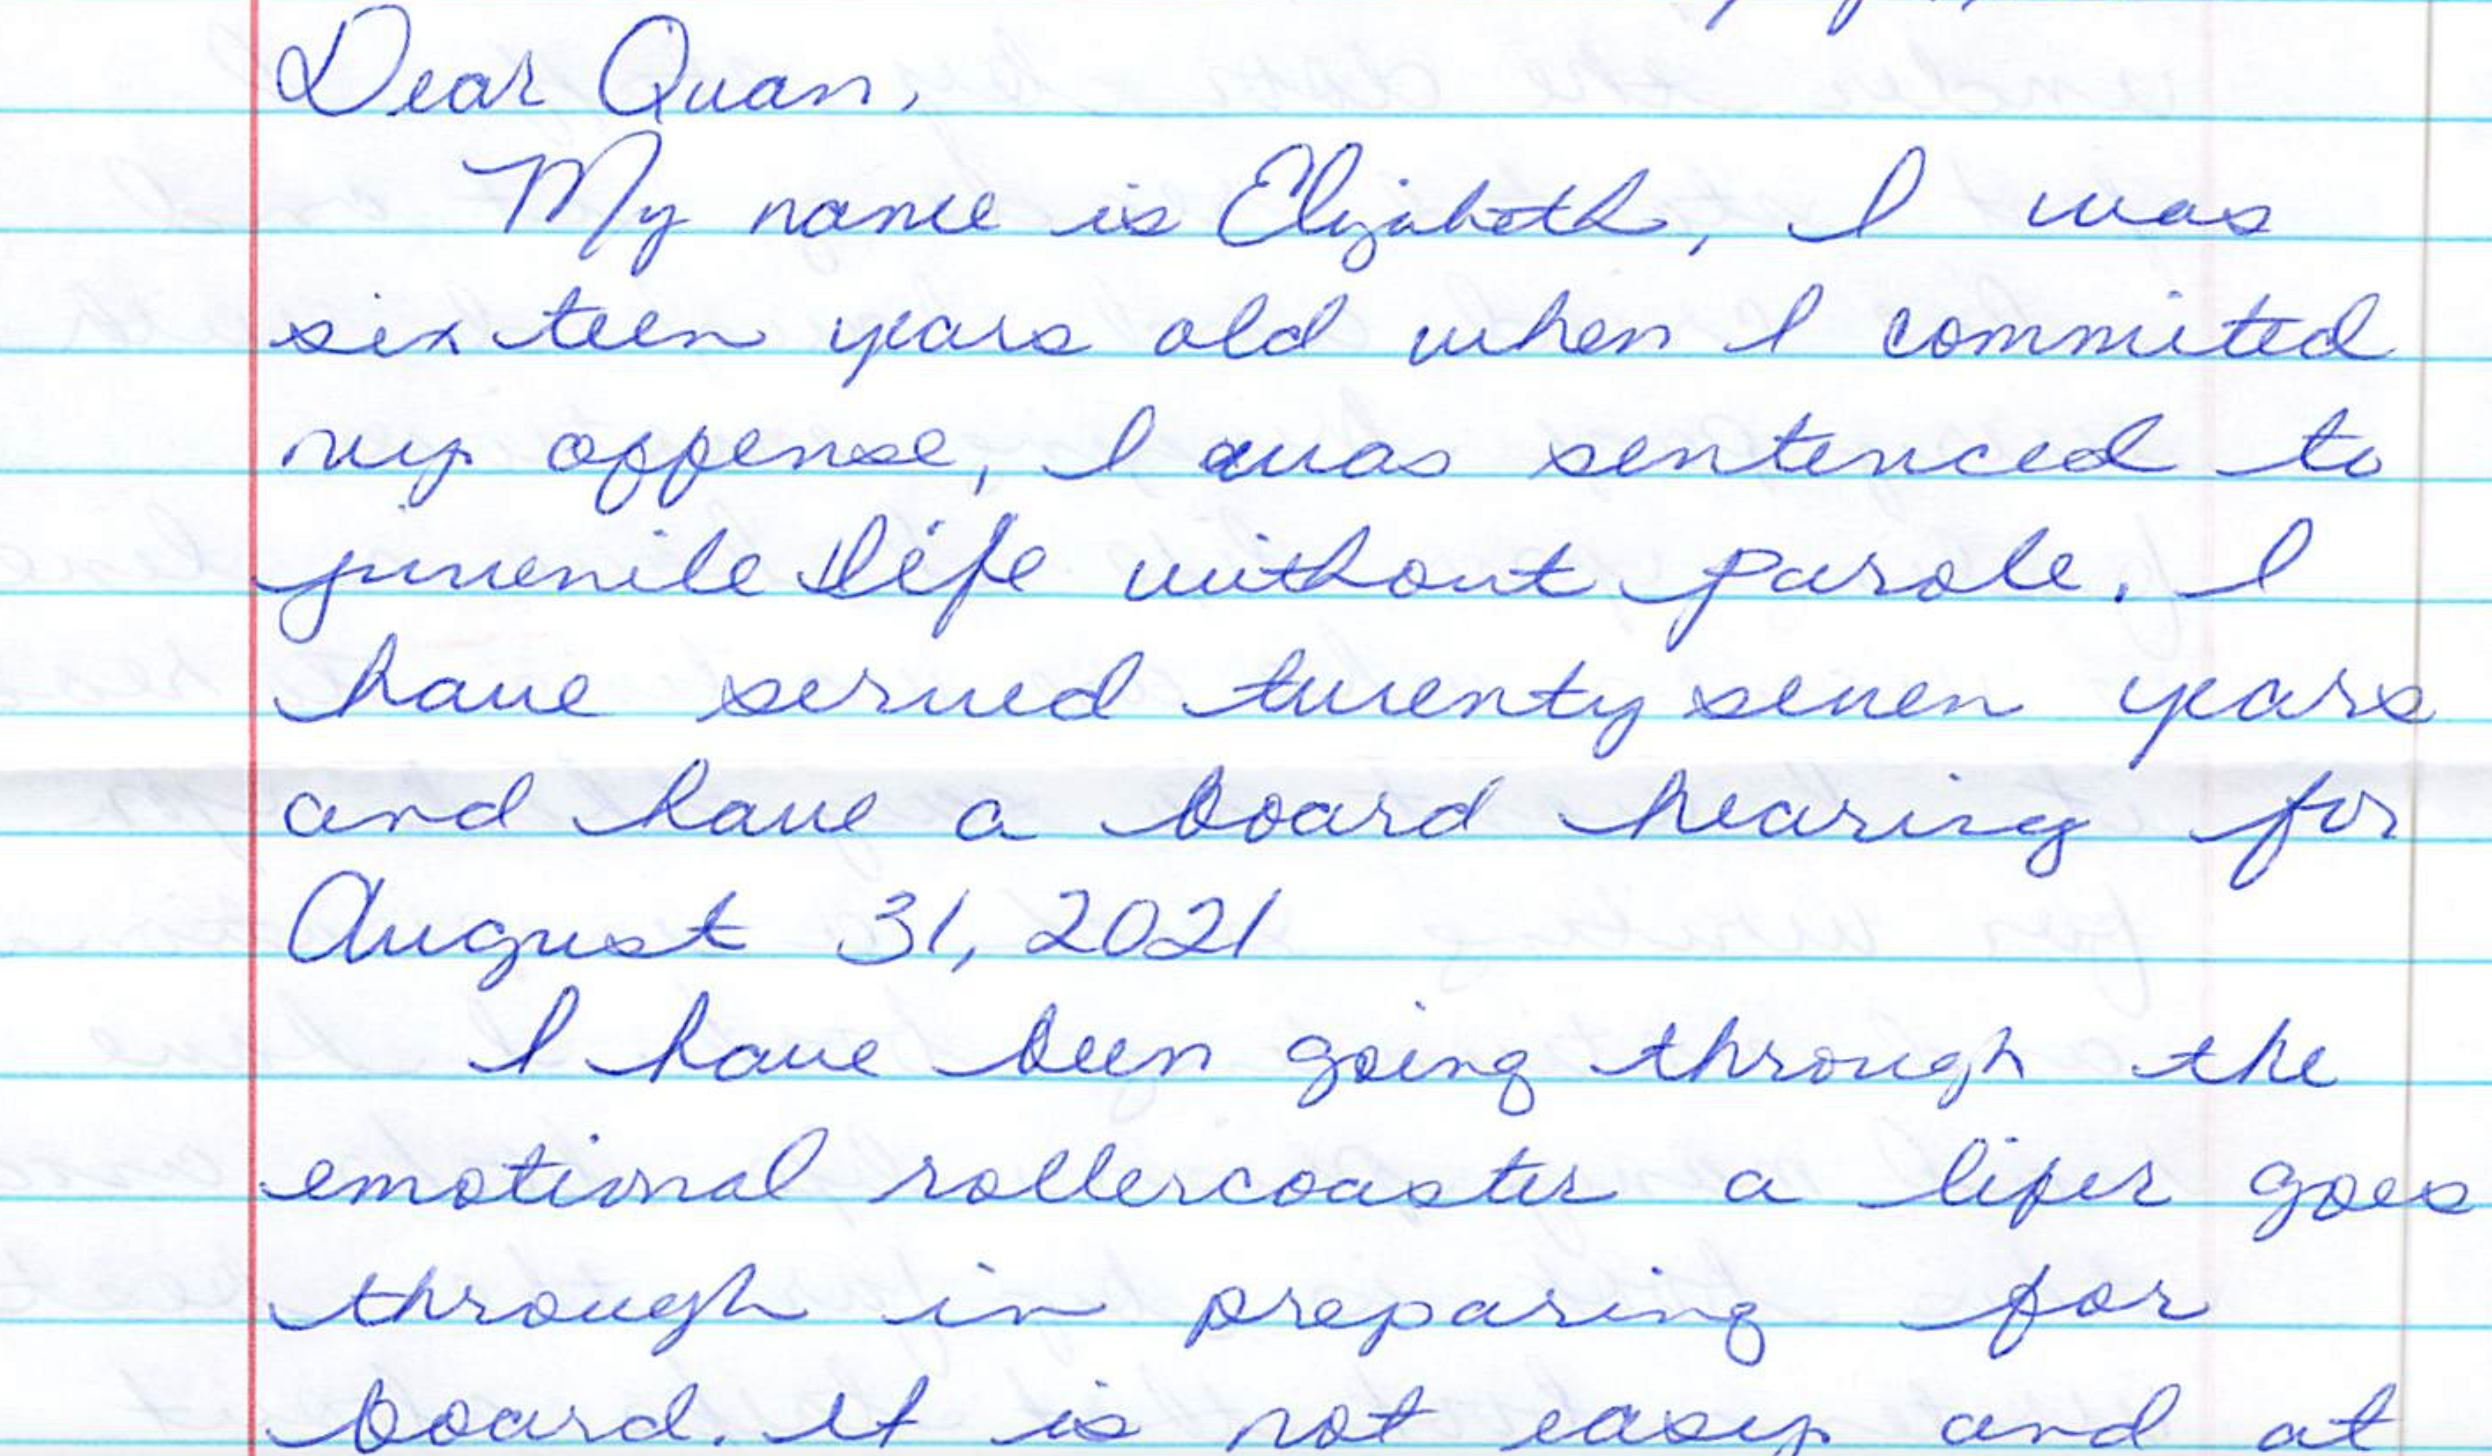 Dear Quan,
My name is Elizabeth, I was
sixteen years old when I commited
my offense, I was sentenced to
juvenile life without parole. I
have served twenty seven years
and have a board hearing for
August 31, 2021
I have been going through the
emotional rollercoaster a lifer goes
through in preparing for
board. It is not easy and at